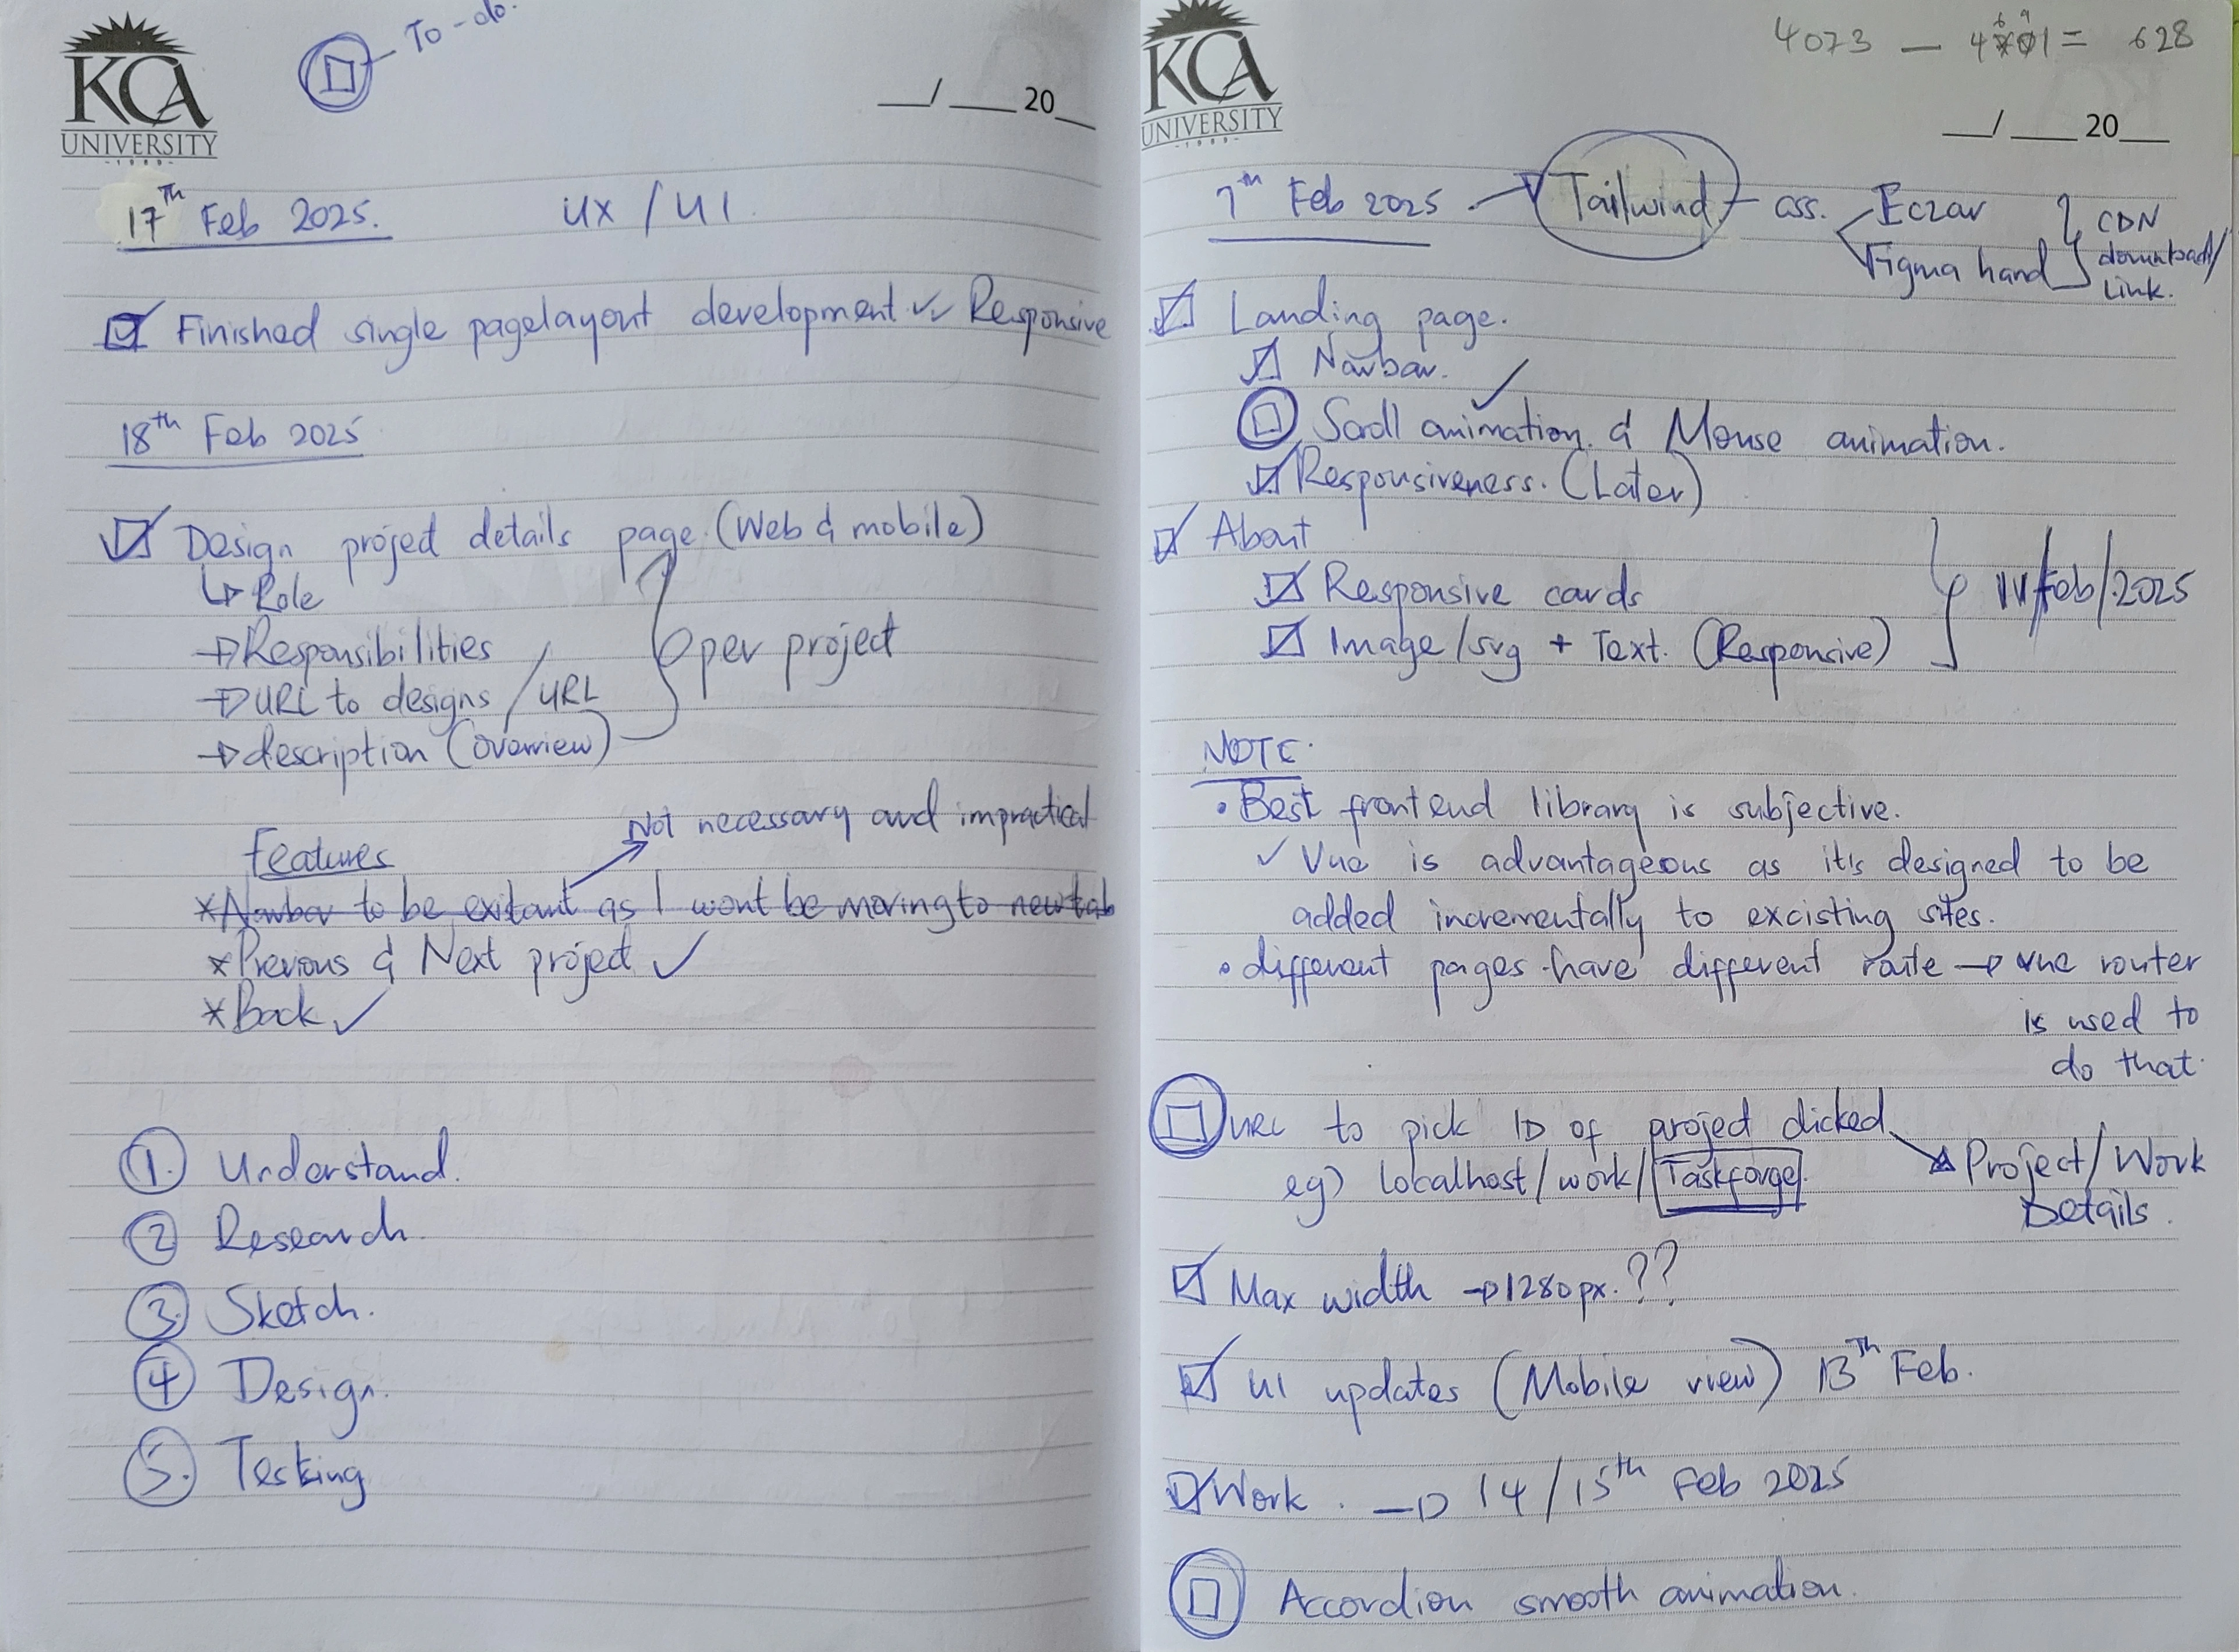 KCA
UNIVERSITY
-1989-
To-do.
__/____20__
17th Feb 2025. UX / UI
Finished single pagelayout development ✓✓ Responsive
18th Feb 2025
Design project details page. (Web & mobile)
↳ Role
→ Responsibilities
→ URL to designs / URL
→ description (overview)
per project
Not necessary and impractical
Features
* Navbar to be existant as I wont be moving to new tab
* Previous & Next project ✓
* Back ✓
1. Understand.
2 Research.
3. Sketch.
4 Design.
5. Testing
KCA
UNIVERSITY
-1989-
= 628
4073 —
__/____20__
7th Feb 2025 → Tailwind css.
Eczar
Figma hand
CDN
download/
Link.
Landing page.
Navbar.
Scroll animation. & Mouse animation. ✓
Responsiveness. (Later)
About
Responsive cards
Image/svg + Text. (Responsive)
Feb/2025
NOTE.
• Best frontend library is subjective.
✓ Vue is advantageous as it's designed to be
added incrementally to excisting sites.
• different pages have different route → vue router
is used to
do that.
URL to pick ID of project clicked
eg) localhost/work/Taskforge.
Project/Work
Details.
Max width → 1280px. ??
UI updates (Mobile view) 13th Feb.
Work. → 14/15th Feb 2025
Accordion smooth animation.